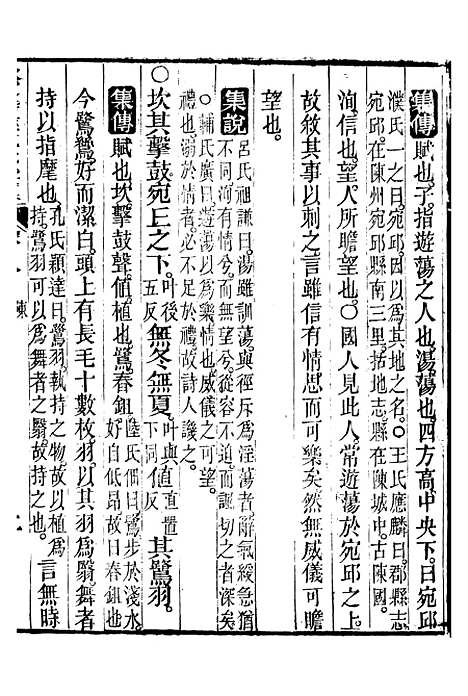 集傳賦也子指遊蕩之人也湯蕩也四方高中央下曰宛邱
濮氏一之曰宛邱因以為其地之名○王氏應麟曰郡縣志
宛邱在陳州宛邱縣南三里括地志縣在陳城中古陳國
洵信也望人所瞻望也○國人見此人常遊蕩於宛邱之上
故敘其事以刺之言雖信有情思而可樂矣然無威儀可瞻
望也
集說呂氏祖謙曰湯雖訓蕩與徑斥為淫蕩者辭氣緩急猶
不同洵有情兮而無望兮從容不迫而諷切之者深矣
○輔氏廣曰遊蕩以為樂情也威儀之可望
禮也溺於情者必不足於禮故詩人譏之
○坎其擊鼓宛丘之下叶後五反無冬無夏叶與下同值直置反其鷺羽
集傳賦也坎擊鼓聲值植也鷺舂鉏陸氏佃曰鷺步於淺水好自低昂故曰舂鉏也
今鷺鷥好而潔白頭上有長毛十數枚羽以其羽為翳舞者
持以指麾也孔氏穎達曰鷺羽執持之物故以植為持鷺羽可以為舞者之翳故持之也言無時
陳